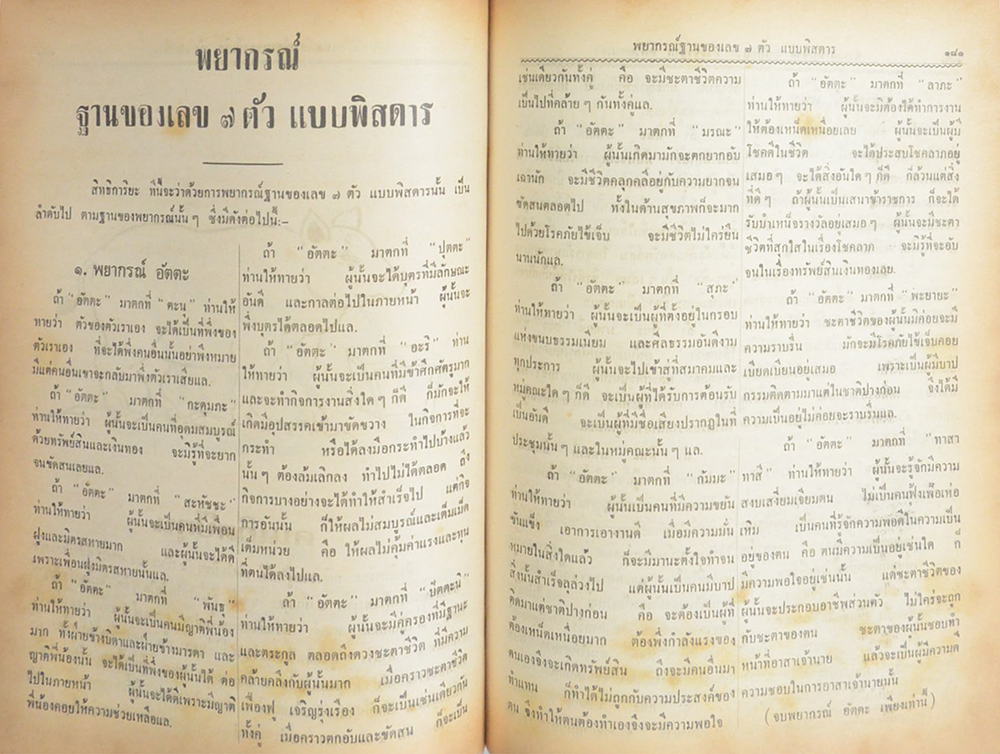 พยากรณ์
ฐานของเลข ๗ ตัว แบบพิสดาร
สิทธิการิยะ ทีนี้จะว่าด้วยการพยากรณ์ฐานของเลข ๗ ตัว แบบพิสดารนั้น เป็น
ลำดับไป ตามฐานของพยากรณ์นั้น ๆ ซึ่งมีดังต่อไปนี้:-
๑. พยากรณ์ อัตตะ
ถ้า "อัตตะ" มาตกที่ "ตะนุ" ท่านให้
ทายว่า ตัวของตัวเราเอง จะได้เป็นที่พึ่งของ
ตัวเราเอง ที่จะได้พึ่งคนอื่นนั้นอย่าพึงหมาย
มีแต่คนอื่นเขาจะกลับมาพึ่งตัวเราเสียแล.
ถ้า "อัตตะ" มาตกที่ "กะดุมภะ"
ท่านให้ทายว่า ผู้นั้นจะเป็นคนที่อุดมสมบูรณ์
ด้วยทรัพย์สินและเงินทอง จะมิรู้ที่จะยาก
จนขัดสนเลยแล.
ถ้า "อัตตะ" มาตกที่ "สะหัชชะ"
ท่านให้ทายว่า ผู้นั้นจะเป็นคนที่มีเพื่อน
ฝูงและมิตรสหายมาก และผู้นั้นจะได้ดี
เพราะเพื่อนฝูงมิตรสหายนั้นแล.
ถ้า "อัตตะ" มาตกที่ "พันธุ"
ท่านให้ทายว่า ผู้นั้นจะเป็นคนมีญาติพี่น้อง
มาก ทั้งฝ่ายข้างบิดาและฝ่ายข้างมารดา และ
ญาติพี่น้องนั้น จะได้เป็นที่พึ่งของผู้นั้นได้ ต่อ
ไปในภายหน้า ผู้นั้นจะได้ดีเพราะมีญาติ
พี่น้องคอยให้ความช่วยเหลือแล.
ถ้า "อัตตะ" มาตกที่ "ปุตตะ"
ท่านให้ทายว่า ผู้นั้นจะได้บุตรที่มีลักษณะ
อันดี และกาลต่อไปในภายหน้า ผู้นั้นจะ
พึ่งบุตรได้ตลอดไปแล.
ถ้า "อัตตะ" มาตกที่ "อะริ" ท่าน
ให้ทายว่า ผู้นั้นจะเป็นคนที่มีข้าศึกศัตรูมาก
และจะทำกิจการงานสิ่งใด ๆ ก็ดี ก็มักจะให้
เกิดมีอุปสรรคเข้ามาขัดขวาง ในกิจการที่จะ
กระทำ หรือได้ลงมือกระทำไปบ้างแล้ว
นั้น ๆ ต้องล้มเลิกลง ทำไปไม่ได้ตลอด ถึง
กิจการบางอย่างจะได้ทำให้สำเร็จไป แต่กิจ
การอันนั้น ก็ให้ผลไม่สมบูรณ์และเต็มเม็ด
เต็มหน่วย คือ ให้ผลไม่คุ้มค่าแรงและทุน
ที่ตนได้ลงไปแล.
ถ้า "อัตตะ" มาตกที่ "ปัตตะนิ"
ท่านให้ทายว่า ผู้นั้นจะมีคู่ครองที่มีฐานะ
และตระกูล ตลอดถึงดวงชะตาชีวิต ที่มีความ
คล้ายคลึงกับผู้นั้นมาก เมื่อคราวชะตาชีวิต
เฟื่องฟู เจริญรุ่งเรือง ก็จะเป็นเช่นเดียวกัน
ทั้งคู่ เมื่อคราวตกอับและขัดสน ก็จะเป็น
พยากรณ์ฐานของเลข ๗ ตัว แบบพิสดาร ๑๘๑
เช่นเดียวกันทั้งคู่ คือ จะมีชะตาชีวิตความ
เป็นไปที่คล้าย ๆ กันทั้งคู่แล.
ถ้า "อัตตะ" มาตกที่ "มรณะ"
ท่านให้ทายว่า ผู้นั้นเกิดมามักจะตกยากอับ
เฉานัก จะมีชีวิตคลุกคลีอยู่กับความยากจน
ขัดสนตลอดไป ทั้งในด้านสุขภาพก็จะมาก
ไปด้วยโรคภัยไข้เจ็บ จะมีชีวิตไม่ใคร่ยืน
นานนักแล.
ถ้า "อัตตะ" มาตกที่ "สุภะ"
ท่านให้ทายว่า ผู้นั้นจะเป็นผู้ที่ตั้งอยู่ในกรอบ
แห่งขนบธรรมเนียม และศีลธรรมอันดีงาม
ทุกประการ ผู้นั้นจะไปเข้าสู่ที่สมาคมและ
หมู่คณะใด ๆ ก็ดี จะเป็นผู้ที่ได้รับการต้อนรับ
เป็นอันดี จะเป็นผู้ที่มีชื่อเสียงปรากฏในที่
ประชุมนั้น ๆ และในหมู่คณะนั้น ๆ แล.
ถ้า "อัตตะ" มาตกที่ "กัมมะ"
ท่านให้ทายว่า ผู้นั้นเป็นคนที่มีความขยัน
ขันแข็ง เอาการเอางานดี เมื่อมีความมั่น
หมายในสิ่งใดแล้ว ก็จะมีมานะตั้งใจทำจน
สิ่งนั้นสำเร็จลุล่วงไป แต่ผู้นั้นเป็นคนมีบาป
ติดมาแต่ชาติปางก่อน คือ จะต้องเป็นผู้ที่
ต้องเหน็ดเหนื่อยมาก ต้องพึ่งกำลังแรงของ
ตนเองจึงจะเกิดทรัพย์สิน ถึงจะมีคนอื่นมา
ทำแทน ก็ทำได้ไม่ถูกกับความประสงค์ของ
ตน จึงทำให้ตนต้องทำเองจึงจะมีความพอใจ
ถ้า "อัตตะ" มาตกที่ "ลาภะ"
ท่านให้ทายว่า ผู้นั้นจะมิต้องได้ทำการงาน
ให้ต้องเหน็ดเหนื่อยเลย ผู้นั้นจะเป็นผู้มี
โชคดีในชีวิต จะได้ประสบโชคลาภอยู่
เสมอ ๆ จะได้สิ่งอันใด ๆ ก็ดี ก็ล้วนแต่สิ่ง
ที่ดี ๆ ถ้าผู้นั้นเป็นเสนาข้าราชการ ก็จะได้
รับบำเหน็จรางวัลอยู่เสมอ ๆ ผู้นั้นจะมีชะตา
ชีวิตที่สุกใสในเรื่องโชคลาภ จะมิรู้ที่จะอับ
จนในเรื่องทรัพย์สินเงินทองเลย.
ถ้า "อัตตะ" มาตกที่ "พะยายะ"
ท่านให้ทายว่า ชะตาชีวิตของผู้นั้นมิค่อยจะมี
ความราบรื่น มักจะมีโรคภัยไข้เจ็บคอย
เบียดเบียนอยู่เสมอ เพราะเป็นผู้มีบาป
กรรมติดตามมาแต่ในชาติปางก่อน จึงได้มี
ความเป็นอยู่ไม่ค่อยจะราบรื่นแล.
ถ้า "อัตตะ" มาตกที่ "ทาสา
ทาสี" ท่านให้ทายว่า ผู้นั้นจะรู้จักมีความ
สงบเสงี่ยมเจียมตน ไม่เป็นคนฟุ้งเฟ้อเห่อ
เหิม เป็นคนที่รู้จักความพอดีในความเป็น
อยู่ของตน คือ ตนมีความเป็นอยู่เช่นใด ก็
มีความพอใจอยู่เช่นนั้น แต่ชะตาชีวิตของ
ผู้นั้นจะประกอบอาชีพส่วนตัว ไม่ใคร่จะถูก
กับชะตาของตน ชะตาของผู้นั้นชอบทำ
หน้าที่อาสาเจ้านาย แล้วจะเป็นผู้มีความดี
ความชอบในการอาสาเจ้านายนั้น
(จบพยากรณ์ อัตตะ เพียงเท่านี้)